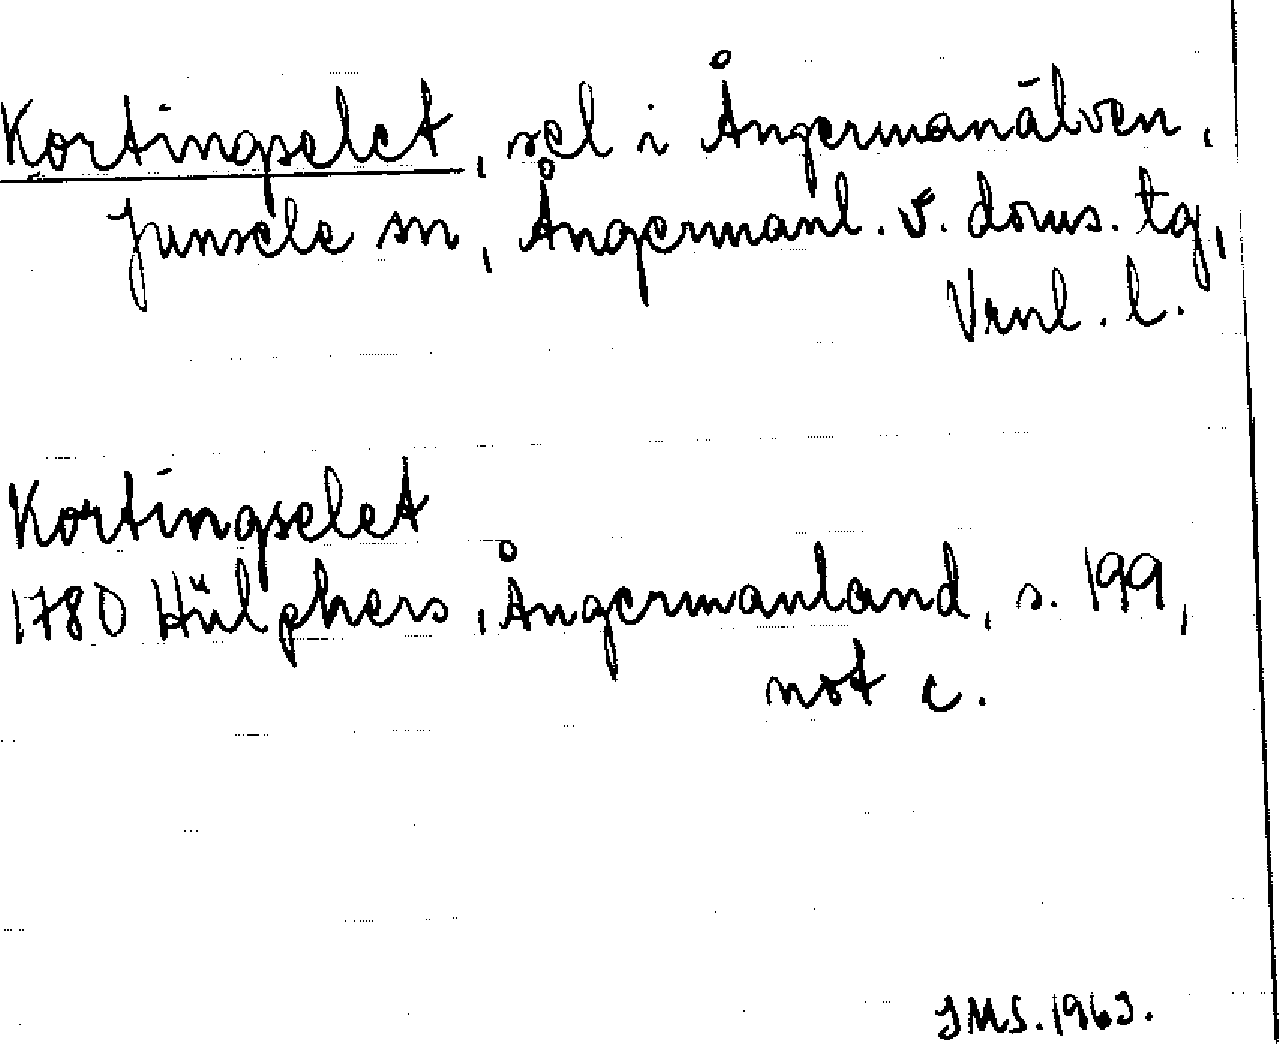 Kortingselet, sel i Ångermanälven,
Junsele sn, Ångermanl. v. doms. tg,
Vrnl. l.
Kortingselet
1780 Hülphers, Ångermanland, s. 199,
not c.
JMS. 1963.